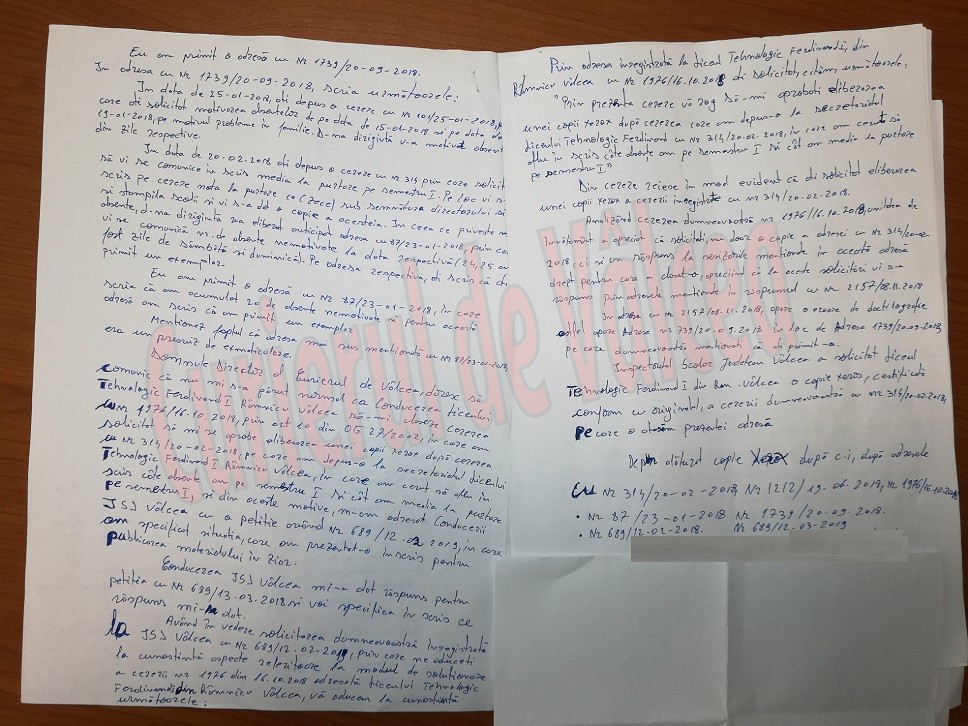 Eu am primit o adresă cu Nr 1739/20-09-2018.
În adresa cu Nr 1739/20-09-2018, scria următoarele:
În data de 25-01-2018, ați depus o cerere cu Nr 101/25-01-2018, p
care ați solicitat motivarea absentelor de pe data de 15-01-2018 si pe data de
19-01-2018, pe motivul probleme în familie. D-na dirigintă v-a motivat absent
din zile respective.
În data de 20.02.2018 ati depus o cerere cu Nr 314 prin care solicit
să vi se comunice în scris media la purtare pe semestru I. Pe loc vi s-
scris pe cerere nota la purtare 10 (zece) sub semnătura directorului si
si stampila scolii si vi s-a dat o copie a acesteia. În ceea ce priveste n
absente, d-na dirigintă va eliberat anticipat adresa cu 87/23-01-2018, prin ca
vi se comunică nr. de absente nemotivate la data respectivă (24, 25 au
fost zile de sâmbătă si duminică). Pe adresa respectivă, ati scris că ati
primit un exemplar
Eu am primit o adresă cu Nr 87/23-01-2018, în care
scria că am acumulat 20 de absente nemotivate si pentru această
adresă am scris că am primit un exemplar
Mentionez faptul că adresa mai sus mentionată cu Nr 87/23-01-2018,
era un
Domnule Director al Curierul de Vâlcea, doresc să
comunic că nu mi s-a părut normal ca conducerea liceului
Tehnologic Ferdinand I Râmnicu Vâlcea să-mi claseze cererea
cu Nr 1976/16.10.2018, prin act 10 din OG 27/2002, în care am
solicitat să mi se aprobe eliberarea unei copii xerox după cererea
cu Nr 314/20-02-2018, pe care am depus-o la secretariatul liceului
Tehnologic Ferdinand I Râmnicu Vâlcea, în care am cerut să aflu în
scris câte absente am pe semestru I si cât am media la purtare
pe semestru I, si din aceste motive, m-am adresat Conducerii
ISJ Vâlcea cu o petitie având Nr 689/12.02 2019, în care
am specificat situatia, care am prezentat-o înscris pentru
publicarea materialului în ziar.
Conducerea ISJ Vâlcea mi-a dat răspuns pentru
petitia cu Nr 689/13.03.2018 si voi specifica în scris ce
răspuns mi-a dat.
Având în vedere solicitarea dumneavoastră înregistrată
la ISJ Vâlcea cu Nr 689/12-02-2019, prin care ne aduceti
la cunostintă aspecte referitoare la modul de solutionare
a cererii nr 1976 din 16.10.2018 adresată liceului Tehnologic
Ferdinand I din Râmnicu Vâlcea, vă aducem la cunostintă
următoarele:
Prin adresa înregistrată la liceul Tehnologic Ferdinand I, din
Râmnicu Vâlcea cu Nr 1976/16.10.2018 ati solicitat, cităm, următoarele:
"Prin prezenta cerere vă rog să-mi aprobati eliberarea
unei copii xerox după cererea care am depus-o la secretariatul
liceului Tehnologic Ferdinand cu Nr 314/20.02.2018, în care am cerut să
aflu în scris câte absente am pe semestru I si cât am media la purtare
pe semestru I."
Din cerere reiese în mod evident că ati solicitat eliberarea
unei copii xerox a cererii înregistrate cu Nr 314/20-02-2018.
Analizând cererea dumneavoastră nr 1976/16.10.2018, unitatea de
învătământ a apreciat că solicitati, nu doar o copie a adresei cu Nr 314/20-02-
2018, ci si un răspuns la mentionate în această adresă
drept pentru care a clasat-o, apreciind că la aceste solicitări vi s-a
răspuns prin adresele mentionate în răspunsul cu Nr 2157/08.11.2018
În adresa cu Nr 2152/08.11.2018, apare o eroare de dactilografiere
astfel apare Adresa Nr 739/20-09.2018 în loc de Adresa 1739/20-09-2018
pe care dumneavoastră mentionati că ati primit-o.
Inspectoratul Scolar Judetean Vâlcea a solicitat liceul
Tehnologic Ferdinand I din Rm. Vâlcea o copie xerox, certificată
conform cu originalul, a cererii dumneavoastră cu Nr 314/20-02-2018,
pe care o atasăm prezentei adresă
Depun alăturat copie xerox după c.i, după adresele
cu Nr 314/20-02-2018, Nr 1212/19-06-2018, Nr 1976/16-10-2018
• Nr 87/23-01-2018 Nr 1739/20-09.2018.
• Nr 689/12-02-2018. Nr 689/12-03-2019
Curierul de Vâlcea